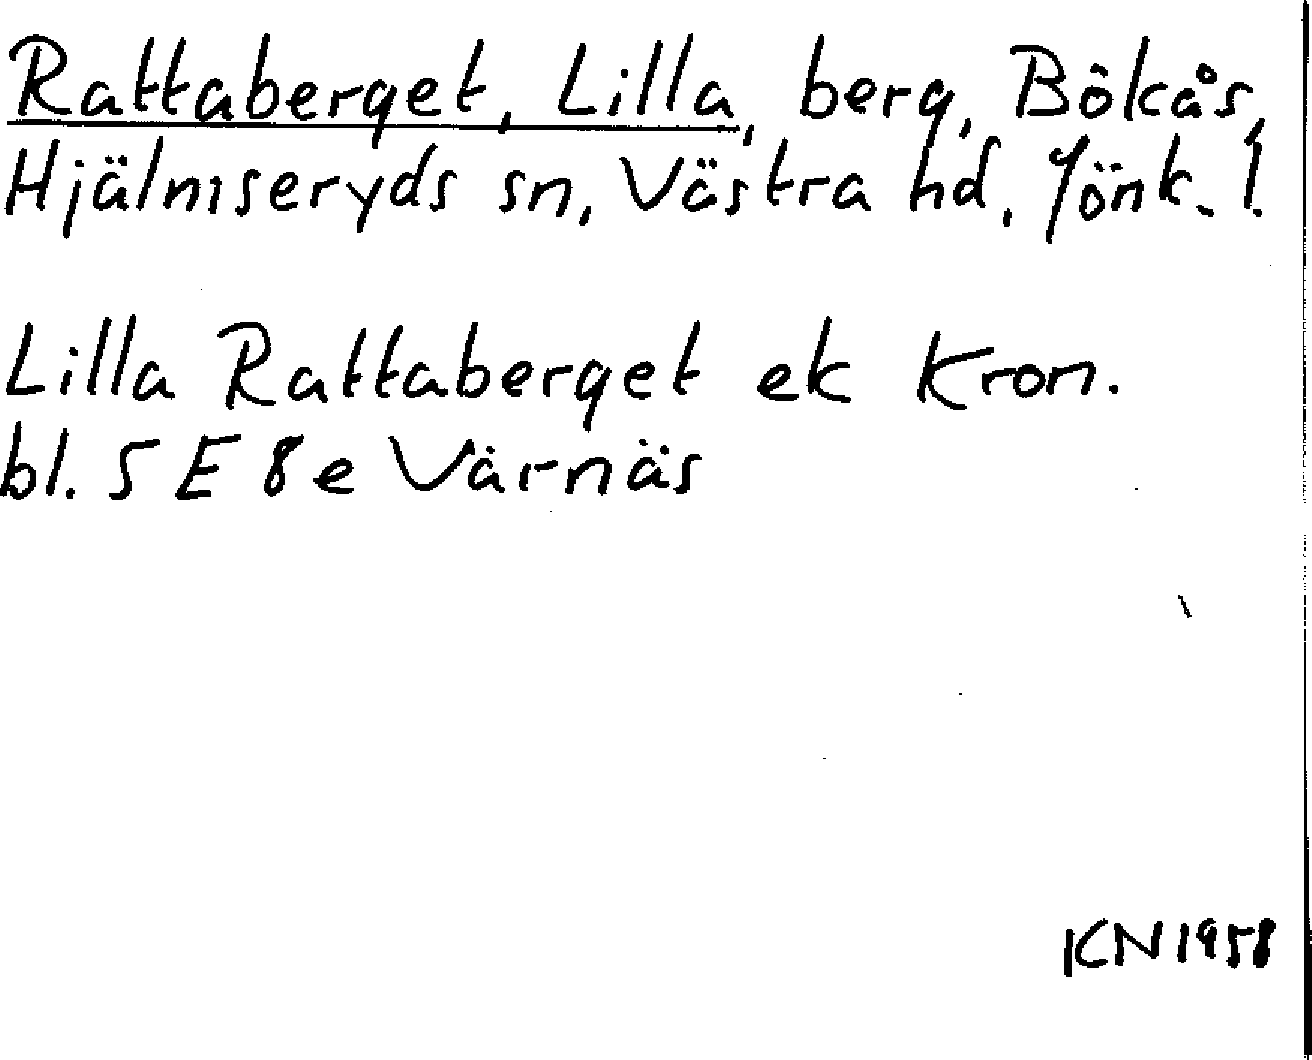 Rattaberget, Lilla, berg, Bökås,
Hjälmseryds sn, Västra hd, Jönk. l.
Lilla Rattaberget ek Kron.
bl. 5 E 8 e Värnäs
KN 1958